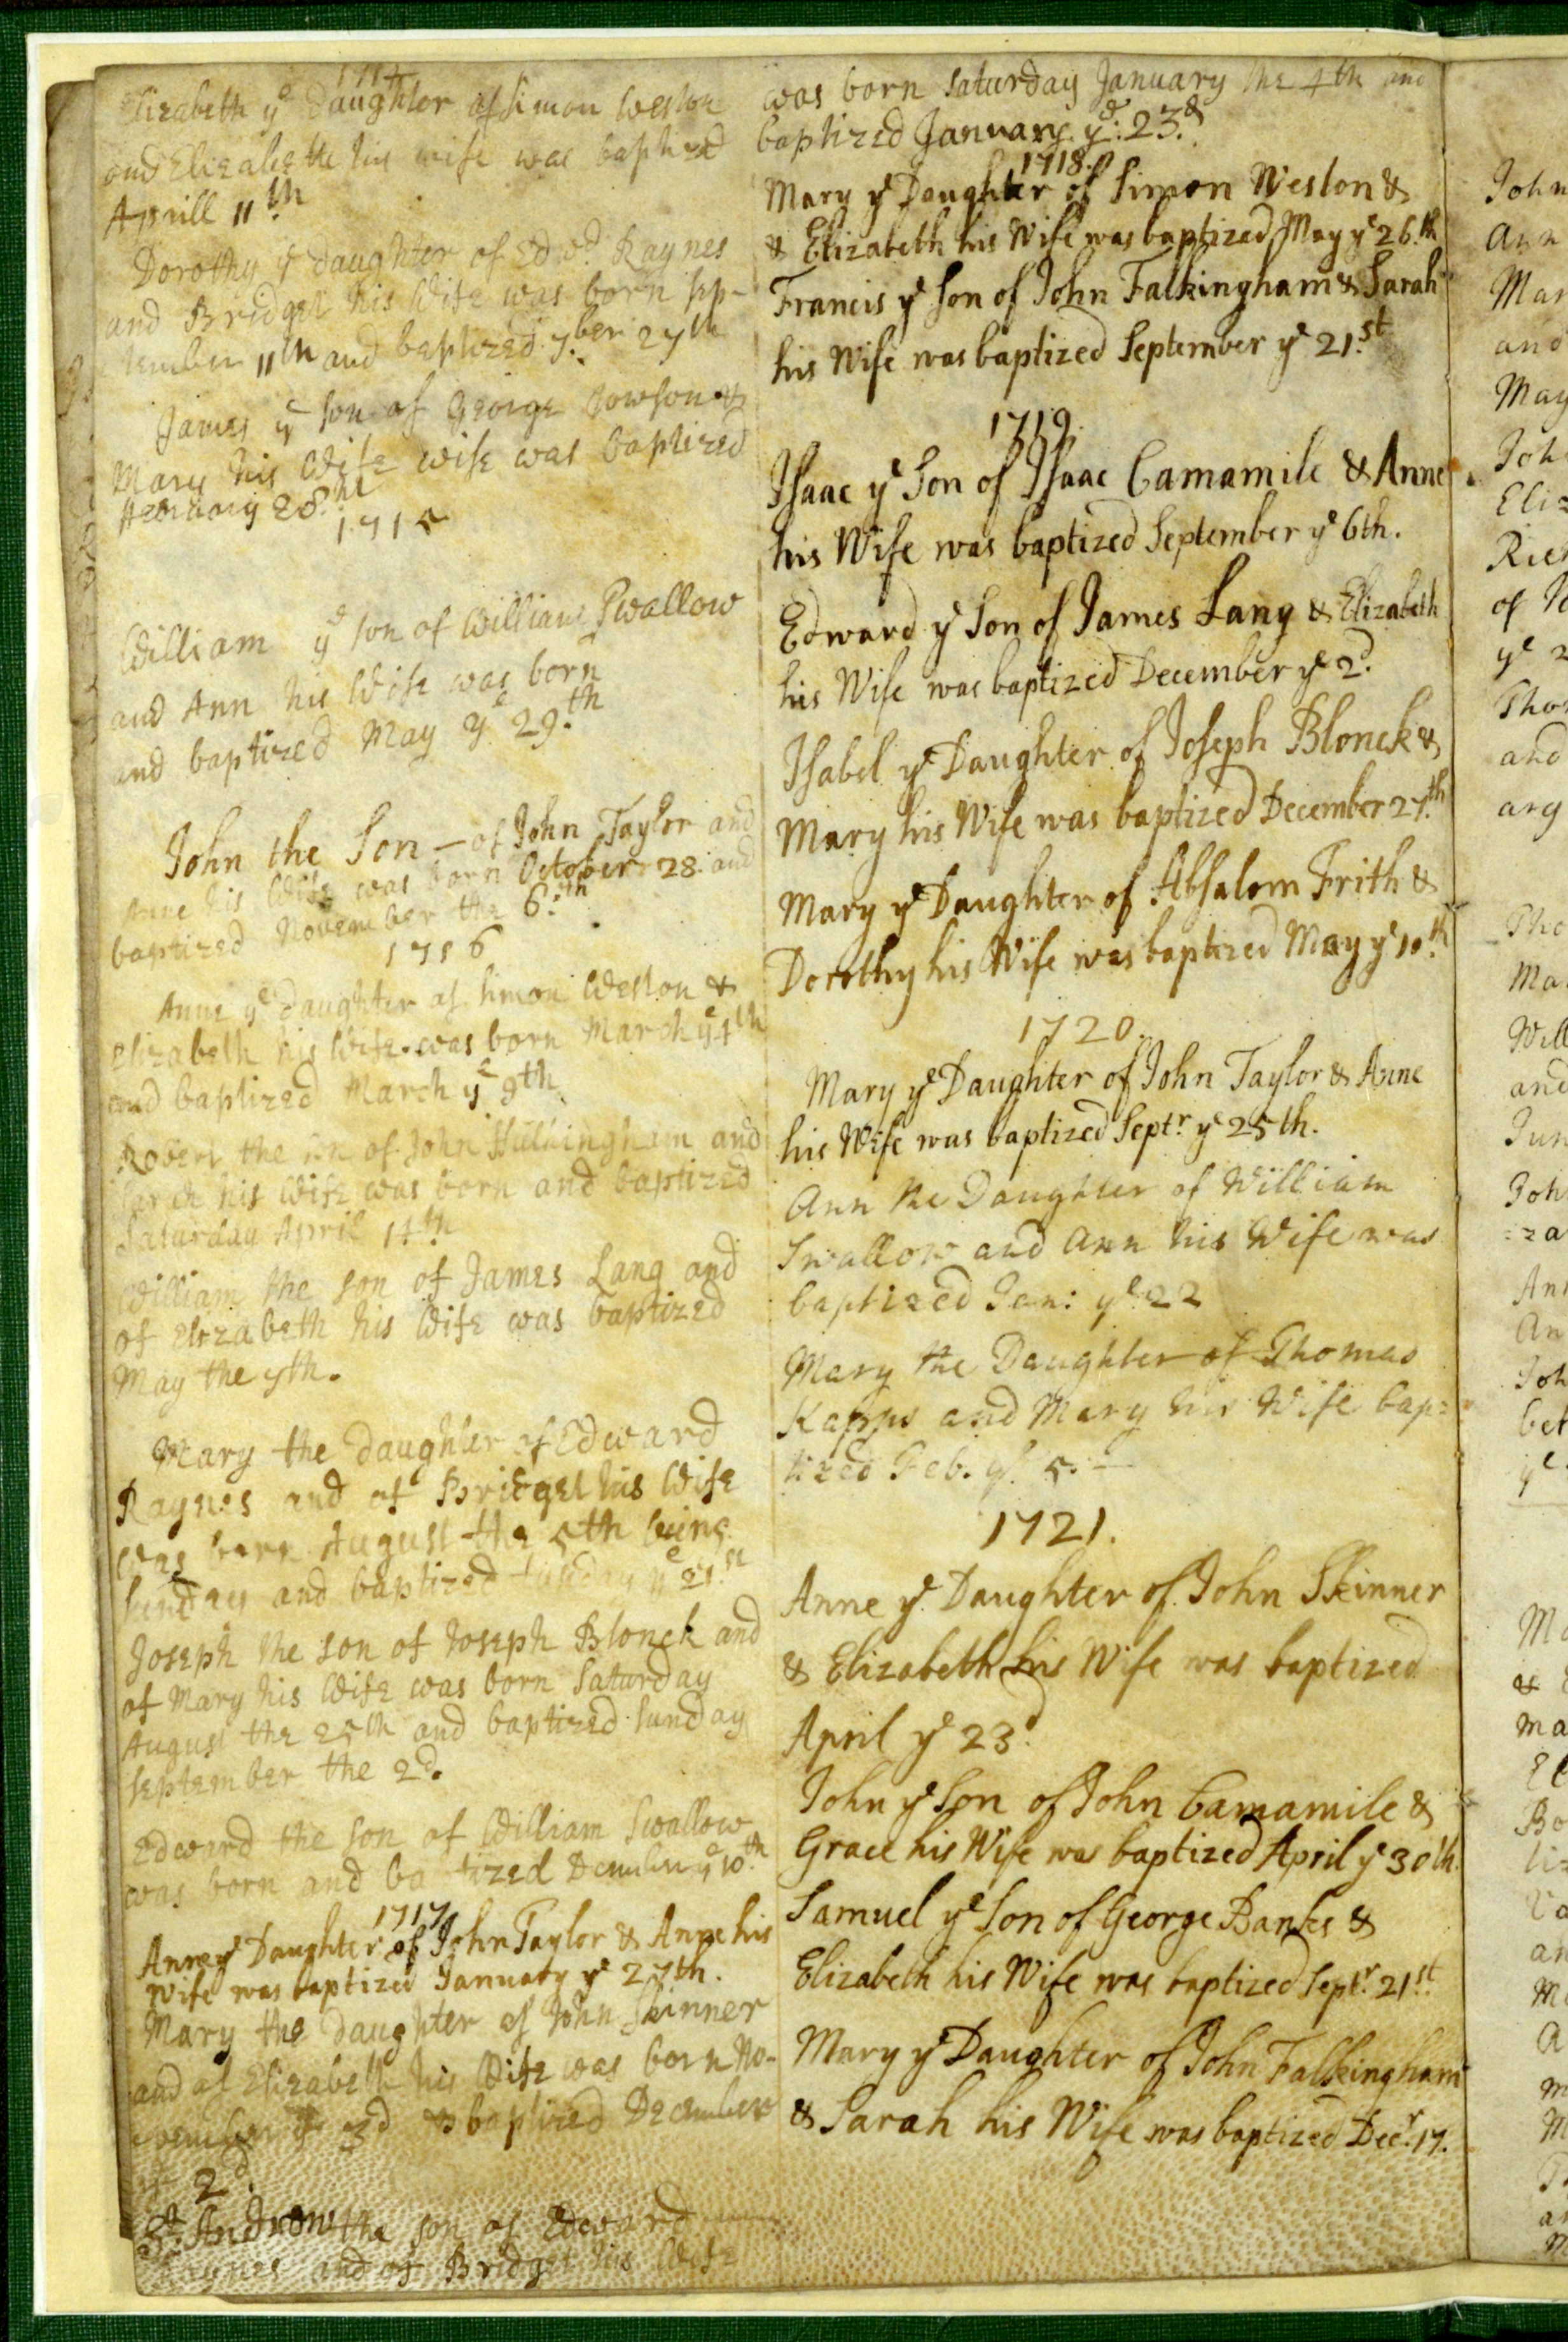 1714
Elizabeth yͤ Daughter of Simon Weston
and Elizabeth his wife was baptized
Aprill 11th
Dorothy yͤ daughter of Ed:d Raynes
and Bridget his Wife was born sep-
tember 11th and baptized 7ber 27th
James yͤ son of George Towson &
Mary his Wife wife was baptized
February 28th
1715
William yͤ son of William Swallow
and Ann his Wife was born
and baptized May yͤ 29.th
John the Son - of John Taylor and
Anne his Wife was born October 28. and
baptized November the 6.th
1716
Anne yͤ Daughter of Simon Weston &
Elizabeth his Wife was born March yͤ 4th
and baptized March yͤ 9th
Robert the son of John and
Sarah his Wife was born and baptized
Saturday April 14th
William the son of James Lang and
of Elizabeth his Wife was baptized
May the 7th.
Mary the daughter of Edward
Raynes and of Bridget his Wife
was born August the 5th being
Sunday and baptized yͤ 21.st
Joseph the son of Joseph Blonck and
of Mary his Wife was born Saturday
August the 25th and baptized Sunday
September the 2d.
Edward the son of William Swallow
was born and ba tized Dember yͤ 10.th
1717
Anne yͤ Daughter of John Taylor & Anne his
Wife was baptized January yͤ 27th.
Mary the Daughter of John Skinner
and of Elizabeth his Wife was born No-
vember yͤ 3d & baptized December
yͤ 2d.
St. Andrew the son of Edward
Raynes and of Bridget his Wife
was born Saturday January the 4th and
baptized January yͤ: 23.d
1718.
Mary yͤ Daughter of Simon Weston &
& Elizabeth his Wife was baptized May yͤ 26.th
Francis yͤ Son of John Falkingham & Sarah
his Wife was baptized September yͤ 21.st
1719.
Isaac yͤ Son of Isaac Camamile & Anne
his Wife was baptized September yͤ 6th.
Edward yͤ Son of James Lang & Elizabeth
his Wife was baptized December yͤ 2d.
Isabel yͤ Daughter of Joseph Blonck &
Mary his Wife was baptized December 27.th
Mary yͤ Daughter of Absalom Frith &
Dorothy his Wife was baptized May yͤ 10.th
1720.
Mary yͤ Daughter of John Taylor & Anne
his Wife was baptized Septr. yͤ 25th.
Ann the Daughter of William
Swallow and Ann his Wife was
baptized Jan: yͤ 22
Mary the Daughter of Thomas
Kapps and Mary his Wife bap=
tized Feb. yͤ 5. -
1721.
Anne yͤ Daughter of John Skinner
& Elizabeth his Wife was baptized
April yͤ 23d.
John yͤ Son of John Camamile &
Grace his Wife was baptized April yͤ 30th.
Samuel yͤ Son of George Banks &
Elizabeth his Wife was baptized Septr. 21st.
Mary yͤ Daughter of John Falkingham
& Sarah his Wife was baptized Decr. 17.